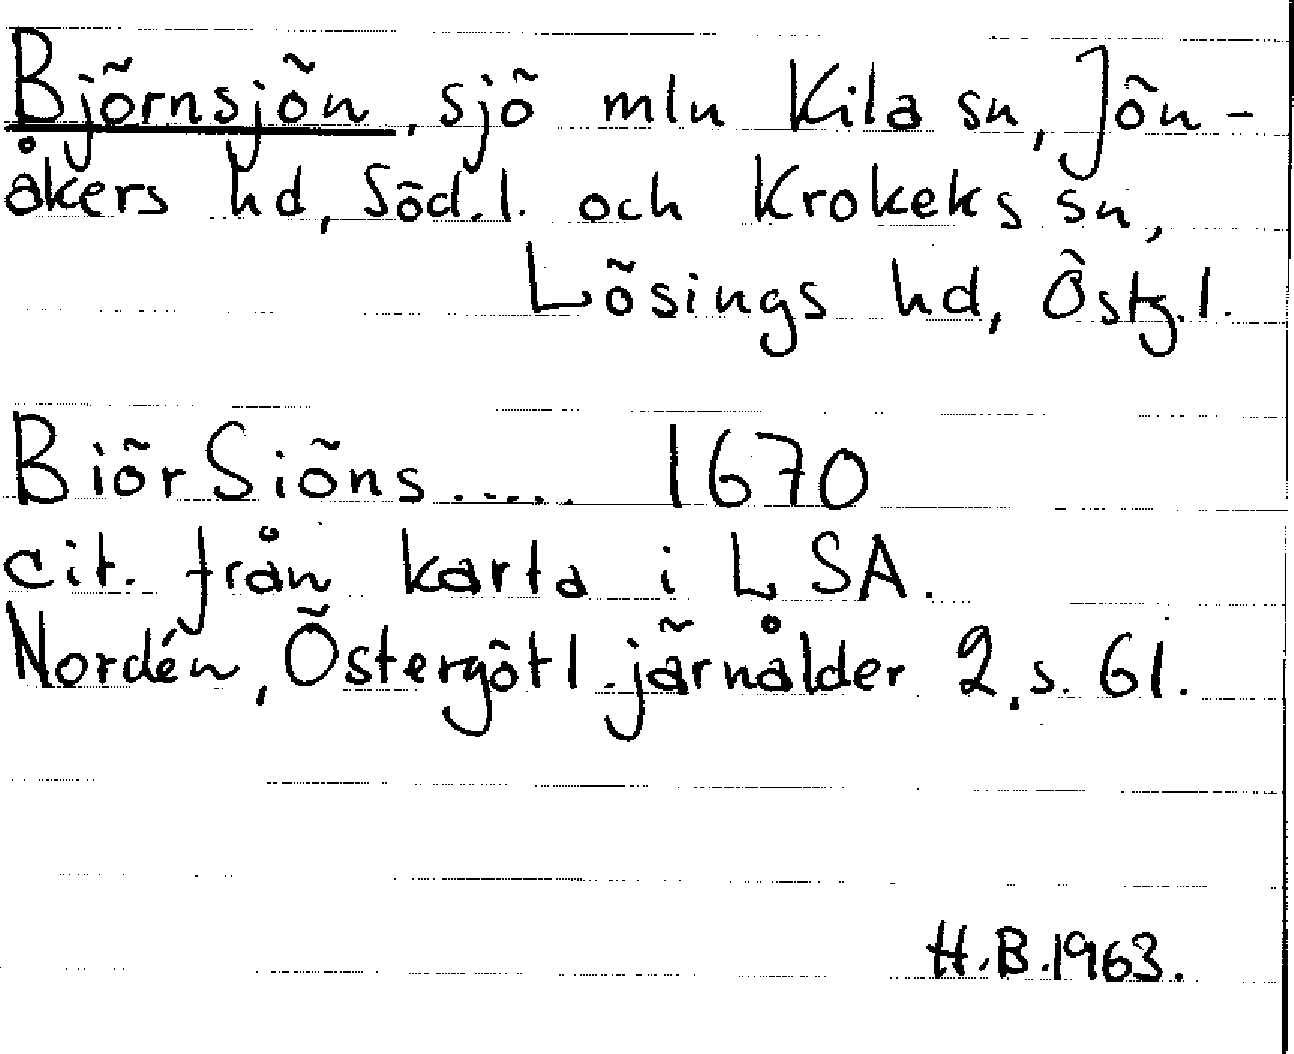 Björnsjön, sjö mln Kila sn, Jön-
åkers hd, Söd.l. och Krokeks sn,
Lösings hd, Östg.l.
BiörSiöns..... 1670
cit. från karta i LSA.
Nordén, Östergötl. järnålder 2, s. 61.
H.B.1963.